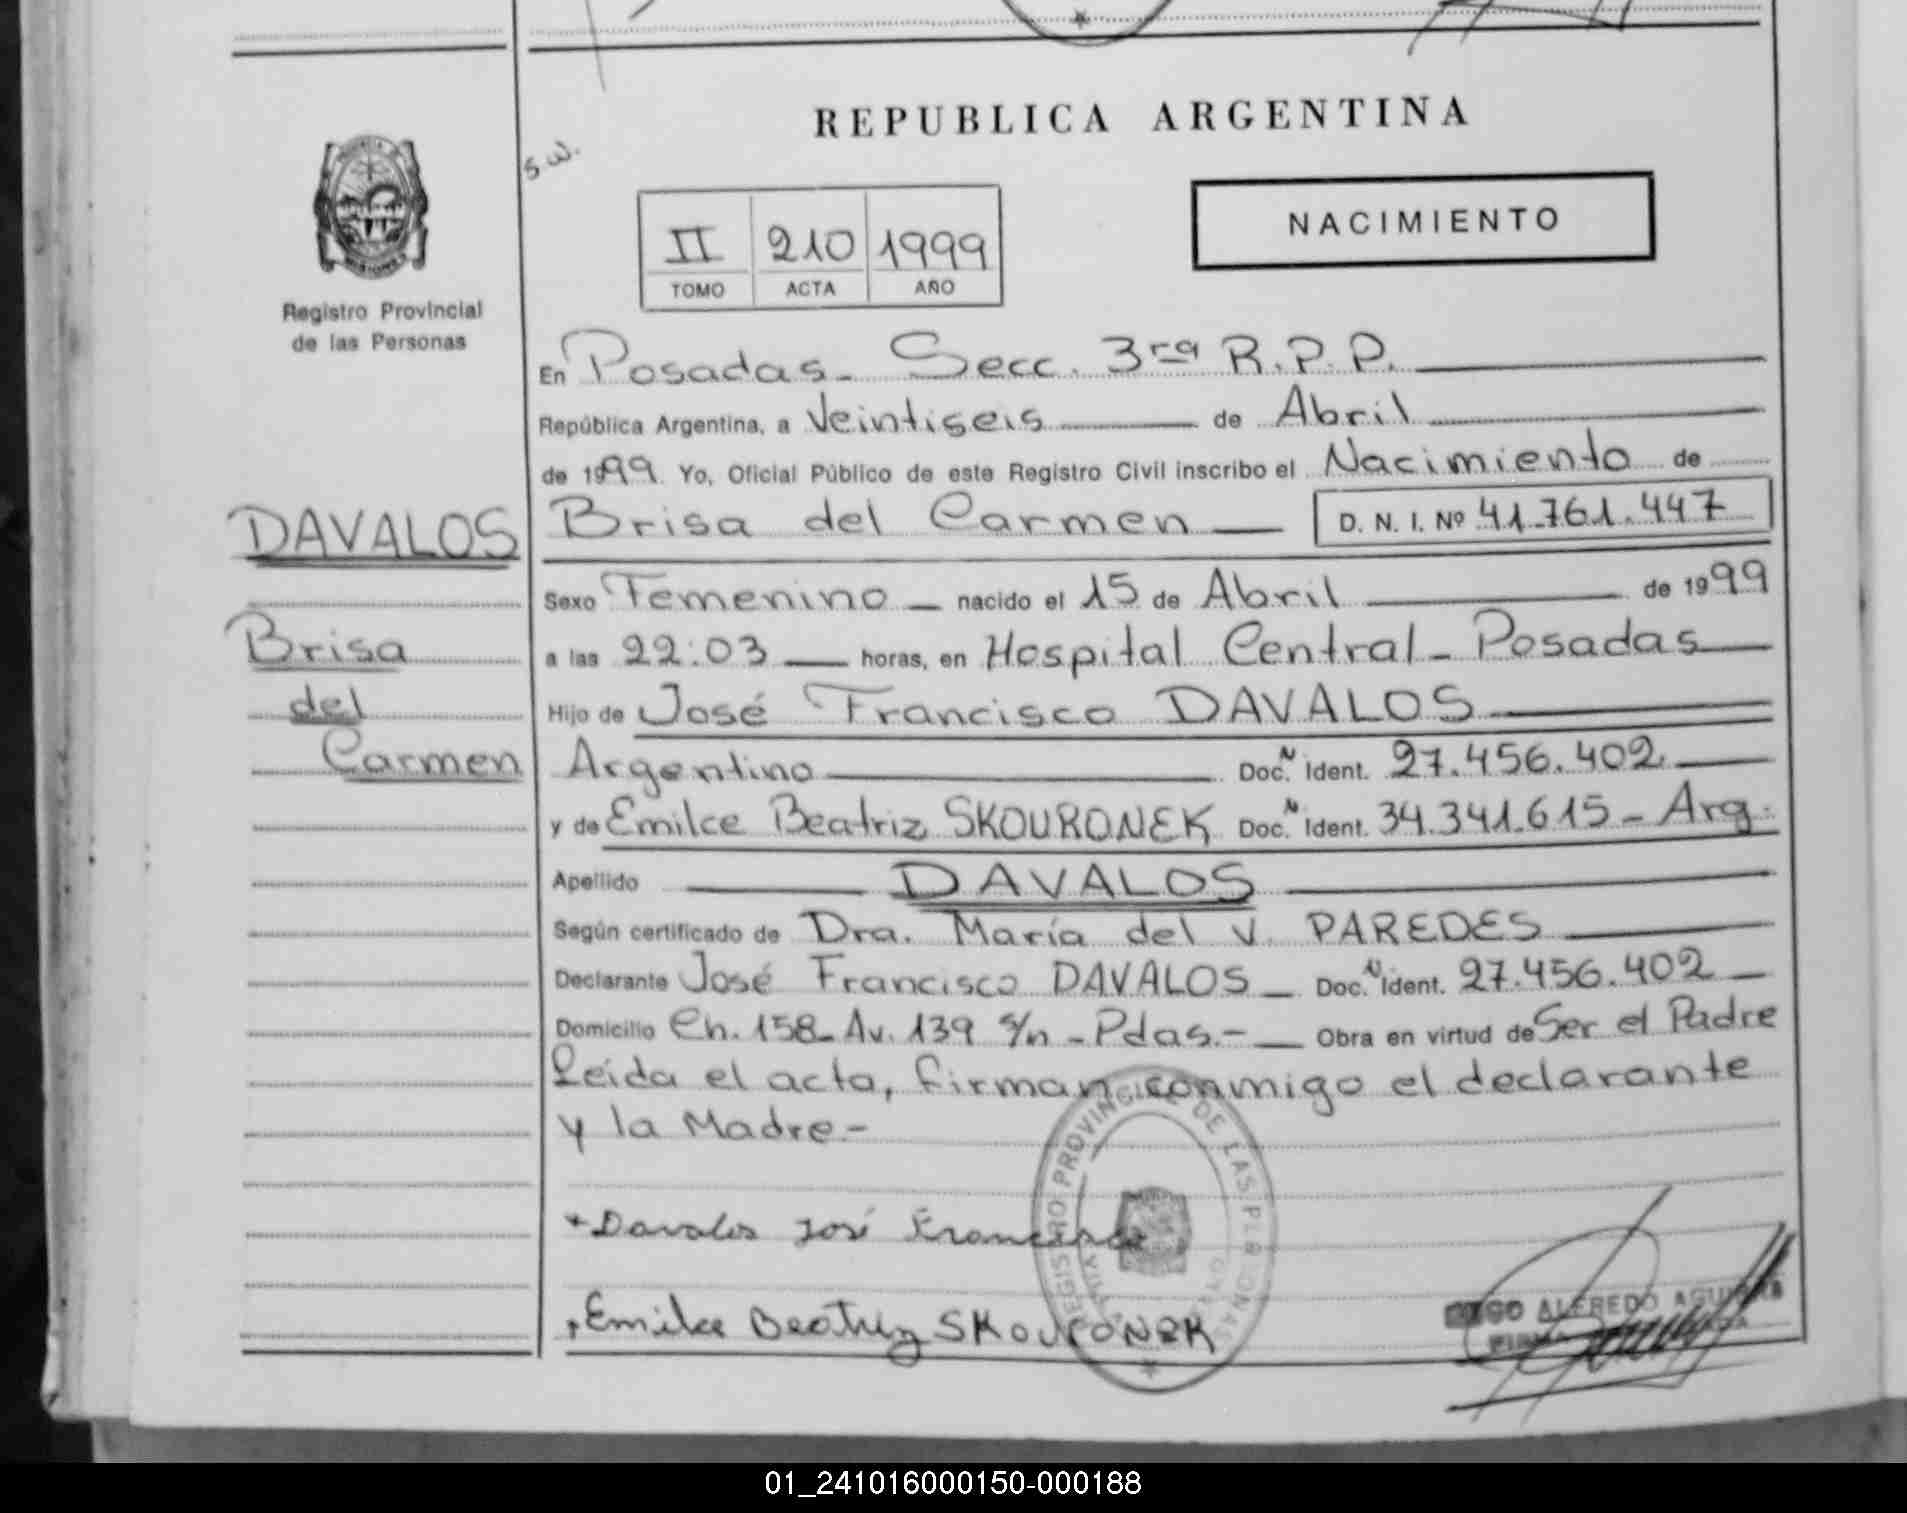 REPUBLICA ARGENTINA
s.w.
NACIMIENTO
II 210 1999
TOMO ACTA AÑO
Registro Provincial
de las Personas
En Posadas - Secc. 3ra R.P.P.
República Argentina, a Veintiseis de Abril
de 1999. Yo, Oficial Público de este Registro Civil inscribo el Nacimiento de
DAVALOS
Brisa del Carmen D. N. I. Nº 41.761.447
Sexo Femenino nacido el 15 de Abril de 1999
Brisa
a las 22:03 horas, en Hospital Central - Posadas
del
Hijo de José Francisco DAVALOS
Carmen
Argentino Doc. N Ident. 27.456.402
y de Emilce Beatriz SKOURONEK Doc. N Ident. 34.341.615 - Arg.
Apellido DAVALOS
Según certificado de Dra. María del V. PAREDES
Declarante José Francisco DAVALOS - Doc. N Ident. 27.456.402
Domicilio Ch. 158 - Av. 139 s/n - Pdas. - Obra en virtud de Ser el Padre
Leída el acta, firman conmigo el declarante
y la Madre -
REGISTRO PROVINCIAL DE LAS PERSONAS
Davalos José Francisco
Emilce Beatriz SKOURONEK
ALFREDO
01_241016000150-000188